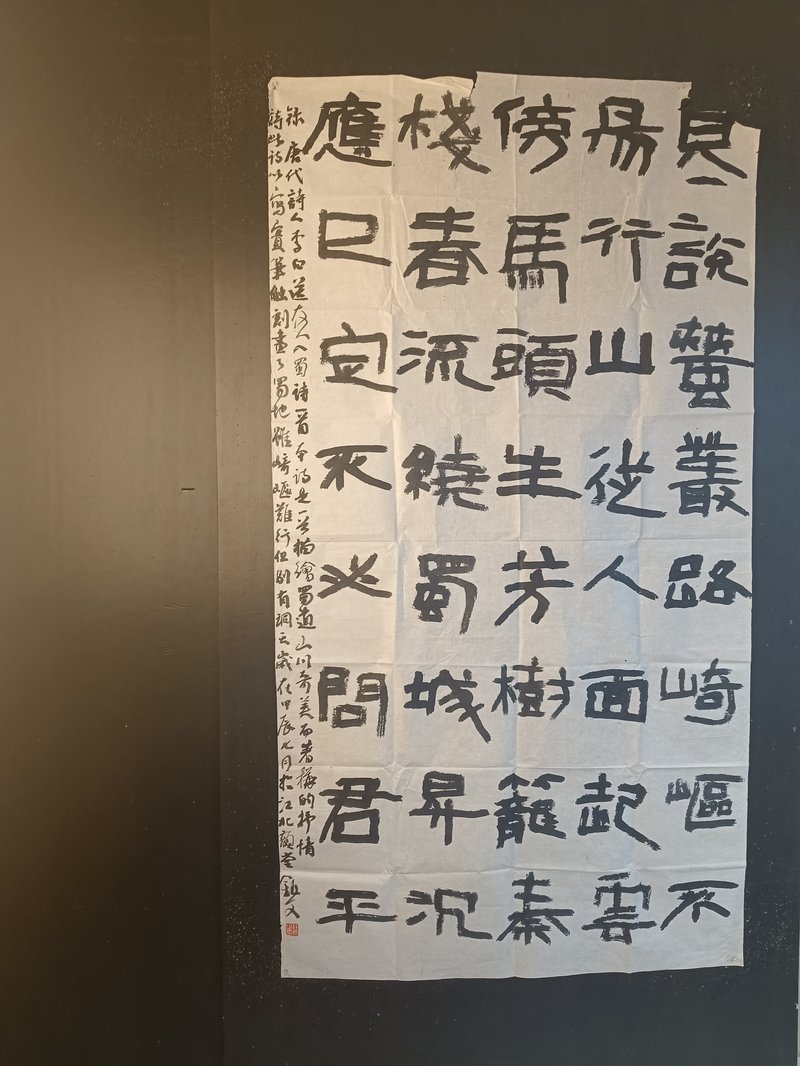 見說蠶叢路崎嶇不
易行山從人面起雲
傍馬頭生芳樹籠秦
棧春流繞蜀城昇沉
應已定不必問君平
錄唐代詩人李白送友人入蜀詩一首本詩是一首描繪蜀道山川奇美而著稱的抒情
詩此詩以寫實筆觸刻畫了蜀地雖崎嶇難行但別有洞天歲在甲辰七月於江北